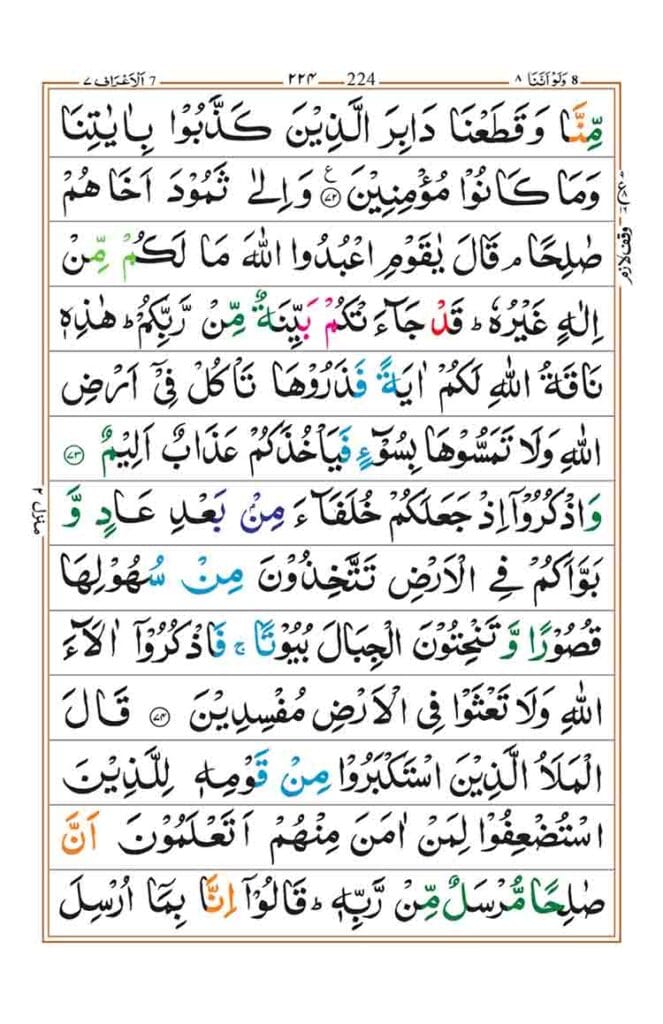 8 وَلَوْ اَنَّنَا ٨ 224 ٢٢٤ 7 اَلْاَعْرَاف ٧
مِّنَّا وَقَطَعْنَا دَابِرَ الَّذِيْنَ كَذَّبُوْا بِاٰيٰتِنَا
وَمَا كَانُوْا مُؤْمِنِيْنَ ۝٧٢ ع وَاِلٰى ثَمُوْدَ اَخَاهُمْ
صٰلِحًا ۘ قَالَ يٰقَوْمِ اعْبُدُوا اللّٰهَ مَا لَكُمْ مِّنْ
اِلٰهٍ غَيْرُهٗ ؕ قَدْ جَآءَتْكُمْ بَيِّنَةٌ مِّنْ رَّبِّكُمْ ؕ هٰذِهٖ
نَاقَةُ اللّٰهِ لَكُمْ اٰيَةً فَذَرُوْهَا تَاْكُلْ فِيْۤ اَرْضِ
اللّٰهِ وَلَا تَمَسُّوْهَا بِسُوْٓءٍ فَيَاْخُذَكُمْ عَذَابٌ اَلِيْمٌ ۝٧٣
وَاذْكُرُوْۤا اِذْ جَعَلَكُمْ خُلَفَآءَ مِنْ بَعْدِ عَادٍ وَّ
بَوَّاَكُمْ فِي الْاَرْضِ تَتَّخِذُوْنَ مِنْ سُهُوْلِهَا
قُصُوْرًا وَّ تَنْحِتُوْنَ الْجِبَالَ بُيُوْتًا ۚ فَاذْكُرُوْۤا اٰلَآءَ
اللّٰهِ وَلَا تَعْثَوْا فِي الْاَرْضِ مُفْسِدِيْنَ ۝٧٤ قَالَ
الْمَلَاُ الَّذِيْنَ اسْتَكْبَرُوْا مِنْ قَوْمِهٖ لِلَّذِيْنَ
اسْتُضْعِفُوْا لِمَنْ اٰمَنَ مِنْهُمْ اَتَعْلَمُوْنَ اَنَّ
صٰلِحًا مُّرْسَلٌ مِّنْ رَّبِّهٖ ؕ قَالُوْۤا اِنَّا بِمَاۤ اُرْسِلَ
وقف لازم
منزل ٢